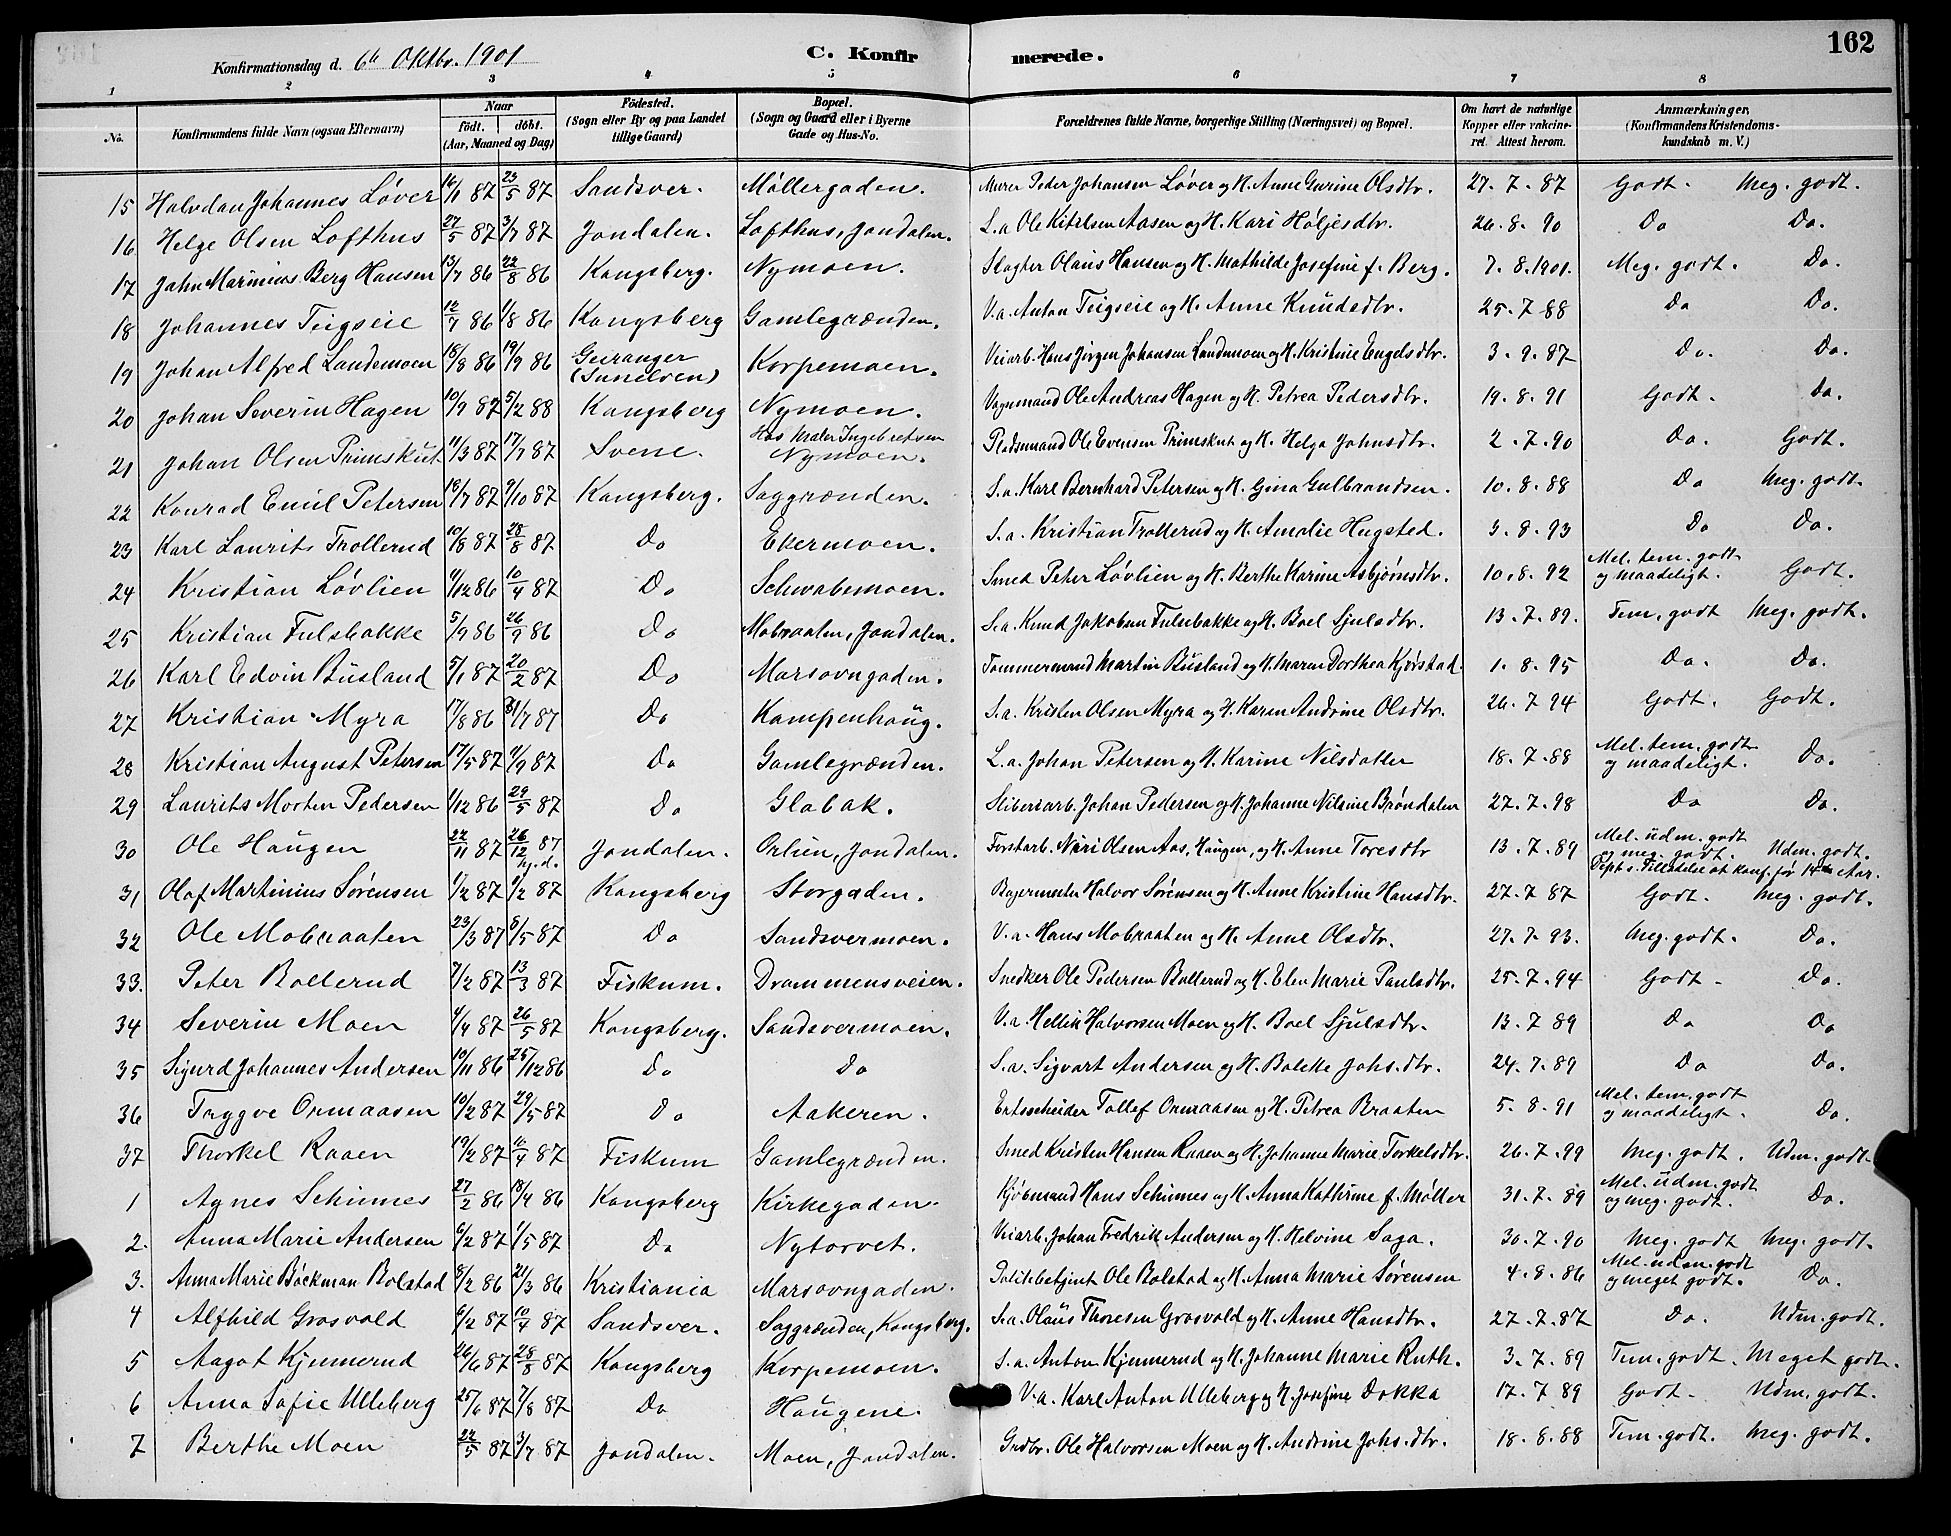 162
Konfirmationsdag d. 6te Oktbr. 1901 C. Konfirmerede.
1 2 3 4 5 6 7 8
No. Konfirmandens fulde Navn (ogsaa Efternavn) Naar födt. döbt. (Aar, Maaned og Dag) Födested. (Sogn eller By og paa Landet tillige Gaard) Bopæl. (Sogn og Gaard eller i Byerne Gade og Hus-No. Forældrenes fulde Navne, borgerlige Stilling (Næringsvei) og Bopæl. Om havt de naturlige Kopper eller vakcineret. Attest herom. Anmærkninger, (Konfirmandens Kristendomskundskab m. V.)
15 Halvdan Johannes Løver 16/1 87 23/5 87 Sandsver. Møllergaden. Murer Peder Johansen Løver og H. Anne Gurine Olsdtr. 27.7.87 Godt. Meg. godt.
16 Helge Olsen Lofthus 27/5 87 3/7 87 Jondalen. Lofthus, Jondalen. S.a. Ole Kittelsen Aasen og H. Kari Høljesdtr. 26.8.90 Do Do.
17 John Marinius Berg Hansen 13/7 86 22/8 86 Kongsberg. Nymoen. Slagter Olaus Hansen og H. Mathilde Josefine f. Berg. 7.8.1901. Meg. godt. Do.
18 Johannes Teigseie 12/7 86 1/8 86 Kongsberg Gamlegrænden. V.a. Anton Teigseie og H. Anne Knudsdtr. 25.7.88 Do Do.
19 Johan Alfred Landemoen 18/8 86 19/9 86 Geiranger (Sunelven) Korpemoen. Veiarb. Hans Jørgen Johansen Landemoen og H. Kristine Engelsdtr. 3.9.87 Do. Do.
20 Johan Severin Hagen 10/9 87 5/2 88 Kongsberg Nymoen. Vognmand Ole Andreas Hagen og H. Petrea Pedersdtr. 19.8.91 Godt. Do.
21 Johan Olsen Primskut 11/3 87 17/7 87 Svene. Hos Maler Ingebretsen Nymoen. Pladsmand Ole Evensen Primskut og H. Helga Johnsdtr. 2.7.90 Do. Godt.
22 Konrad Emil Petersen 18/7 87 9/10 87 Kongsberg. Saggrænden. S.a. Karl Bernhard Petersen og H. Gina Gulbrandsen. 10.8.88 Do Meg. godt.
23 Karl Laurits Trollerud 10/8 87 28/8 87 Do Ekermoen. S.a. Kristian Trollerud og H. Amalie Hugsted. 3.8.93 Do Do.
24 Kristian Løvlien 4/12 86 10/4 87 Do Schwabemoen. Smed Peter Løvlien og H. Berthe Karine Asbjørnsdtr. 10.8.92 Mel. tem. godt og maadeligt. Godt.
25 Kristian Fulsbakke 5/9 86 26/9 86 Do Mobraaten, Jondalen. S.a. Knud Jakobsen Fulsebakke og H. Boel Sjulsdtr. 13.7.89. Tem. godt Meg. godt.
26 Karl Edvin Busland 5/1 87 20/2 87 Do Marsovngaden. Tømmermand Martin Busland og H. Maren Dorthea Kjørstad. 1.8.95 Do. Do.
27 Kristian Myra 17/8 86 31/7 87 Do Kampenhaug. S.a. Kristen Olsen Myra og H. Karen Andrine Olsdtr. 26.7.94 Godt. Godt.
28 Kristian August Petersen 17/5 87 4/9 87 Do Gamlegrænden. L.a. Johan Petersen og H. Karine Nilsdatter 18.7.88 Mel. tem. godt og maadeligt. Do.
29 Laurits Morten Pedersen 1/12 86 29/5 87 Do Glabak. Sliberiarb. Johan Pedersen og H. Johanne Nilsine Brøndalen 27.7.98 Do Do.
30 Ole Haugen 22/11 87 26/12 87 hj.d. Jondalen. Orlien, Jondalen. Forstarb. Niri Olsen Aas, Haugen, og H. Anne Toresdtr 13.7.89 Mel. udm. godt og meg. godt. Udm. godt. Dept s. Tilladelse at konf. før 14de Aar.
31 Olaf Martinius Sørensen 1/2 87 1/2 87 Kongsberg Storgaden. Bagermester Halvor Sørensen og H. Anne Kristine Hansdtr. 27.7.87 Godt. Meg. godt.
32 Ole Mobraaten 23/3 87 8/5 87 Do Sandsvermoen. V.a. Hans Mobraaten og H. Anne Olsdtr. 27.7.93. Meg. godt. Do.
33. Peter Bollerud 7/2 87 13/3 87 Fiskum. Drammensveien. Snedker Ole Pedersen Bollerud og H. Elen Marie Paulsdtr. 25.7.94 Godt. Do.
34 Severin Moen 4/4 87 26/5 87 Kongsberg. Sandsvermoen. V.a. Hellik Halvorsen Moen og H. Boel Sjulsdtr. 13.7.89 Do Do
35 Sigurd Johannes Andersen 10/11 86 25/12 86 Do Do S.a. Sigvart Andersen og H. Bolette Johs.dtr. 24.7.89 Do Do.
36 Trygve Ormaasen 10/2 87 29/5 87 Do Aakeren. Ertsscheider Tollef Ormaasen og H. Petrea Braaten 5.8.91 Mel. tem. godt og maadeligt. Do.
37 Thorkel Raaen 19/2 87 11/4 87 Fiskum Gamlegrænden. Smed Kristen Hansen Raaen og H. Johanne Marie Torkelsdtr. 26.7.99 Meg. godt. Udm. godt.
1 Agnes Schinnes 27/2 86 18/4 86 Kongsberg Kirkegaden. Kjøbmand Hans Schinnes og H. Anna Kathrine f. Møller 31.7.89 Mel. udm. godt og meg. godt. Do.
2. Anna Marie Andersen 6/2 87 1/5 87 Do Nytorvet. Veiarb. Johan Fredrik Andersen og H. Helvine Saga. 30.7.90 Meg. godt Meg. godt.
3. Anna Marie Bøckman Bolstad 8/2 86 21/3 86 Kristiania Marsovngaden. Politibetjent Ole Bolstad og H. Anna Marie Sørensen 4.8.86 Mel. udm. godt og meget godt. Do.
4 Alfhild Grosvold 6/2 87 10/4 87 Sandsver. Saggrænden, Kongsberg. S.a. Olaus Thoresen Grosvold og H. Anne Hansdtr. 27.7.87 Do. Udm. godt.
5 Aagot Kjennerud 26/6 87 28/8 87 Kongsberg Korpemoen. S.a. Anton Kjennerud og H. Johanne Marie Ruth. 3.7.89 Tem. godt. Meget godt.
6 Anna Sofie Ulleberg 25/6 87 7/8 87 Do Haugene. V.a. Karl Anton Ulleberg og H. Josefine Dokka 17.7.89 Godt. Udm. godt.
7 Berthe Moen 22/5 87 3/7 87 Jondalen. Moen, Jondalen. Grdbr. Ole Halvorsen Moen og H. Andrine Johs.dtr. 18.8.88 Tem. godt. Meg. godt.